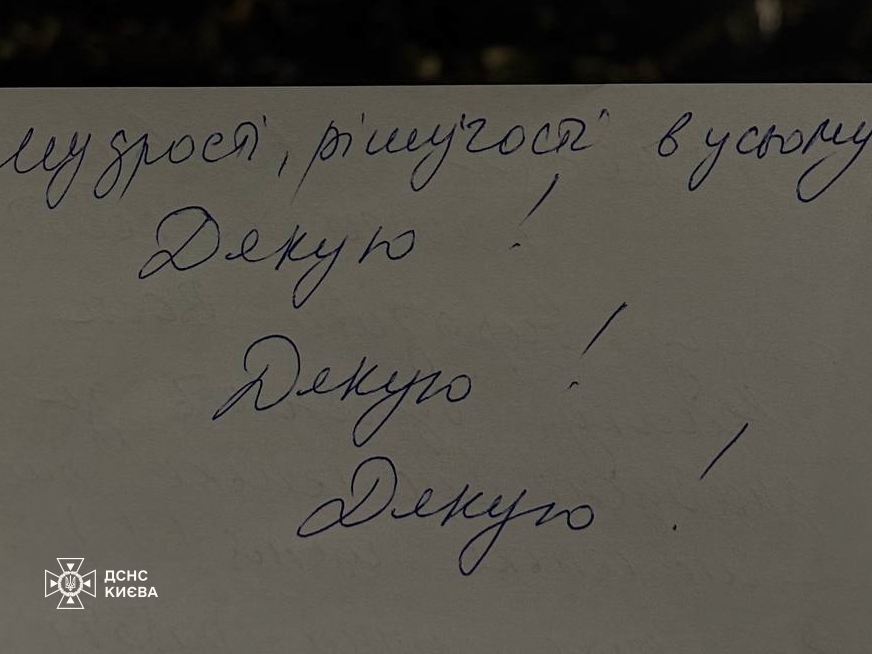 мудрості, рішучості в усьому
Дякую !
Дякую !
Дякую !
ДСНС
КИЄВА